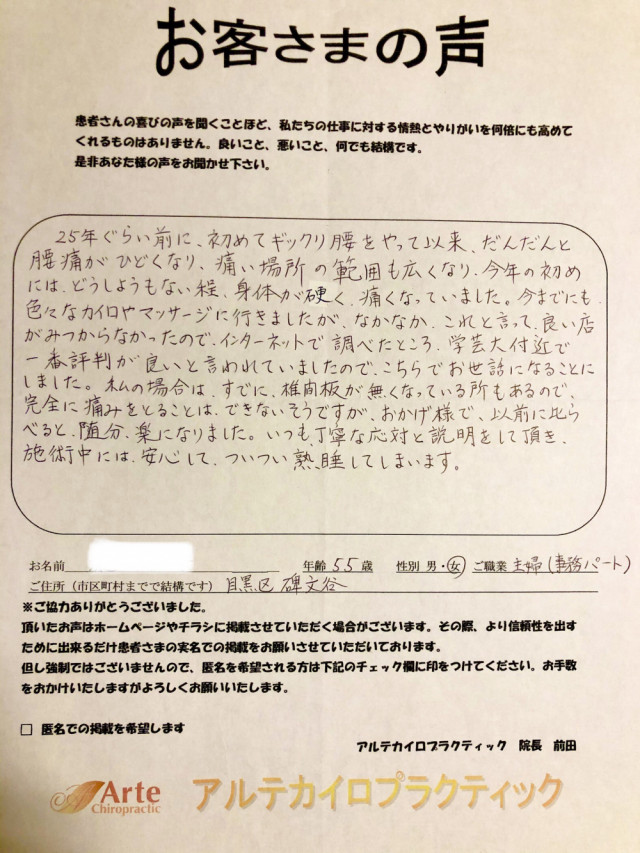 お客さまの声
患者さんの喜びの声を聞くことほど、私たちの仕事に対する情熱とやりがいを何倍にも高めて
くれるものはありません。良いこと、悪いこと、何でも結構です。
是非あなた様の声をお聞かせ下さい。
25年ぐらい前に、初めてギックリ腰をやって以来、だんだんと
腰痛がひどくなり、痛い場所の範囲も広くなり、今年の初め
には、どうしようもない程、身体が硬く、痛くなっていました。今までにも
色々なカイロやマッサージに行きましたが、なかなか、これと言って、良い店
がみつからなかったので、インターネットで調べたところ、学芸大付近で
一番評判が良いと言われていましたので、こちらでお世話になることに
しました。私の場合は、すでに、椎間板が無くなっている所もあるので、
完全に痛みをとることは、できないそうですが、おかげ様で、以前に比ら
べると、随分、楽になりました。いつも丁寧な応対と説明をして頂き、
施術中には、安心して、ついつい熟睡してしまいます。
お名前 年齢 55 歳 性別 男・女 ご職業 主婦(事務パート)
ご住所（市区町村までで結構です） 目黒区 碑文谷
※ご協力ありがとうございました。
頂いたお声はホームページやチラシに掲載させていただく場合がございます。その際、より信頼性を出す
ために出来るだけ患者さまの実名での掲載をお願いさせていただいております。
但し強制ではございませんので、匿名を希望される方は下記のチェック欄に印をつけてください。お手数
をおかけいたしますがよろしくお願いいたします。
□ 匿名での掲載を希望します
アルテカイロプラクティック 院長 前田
Arte
Chiropractic
アルテカイロプラクティック